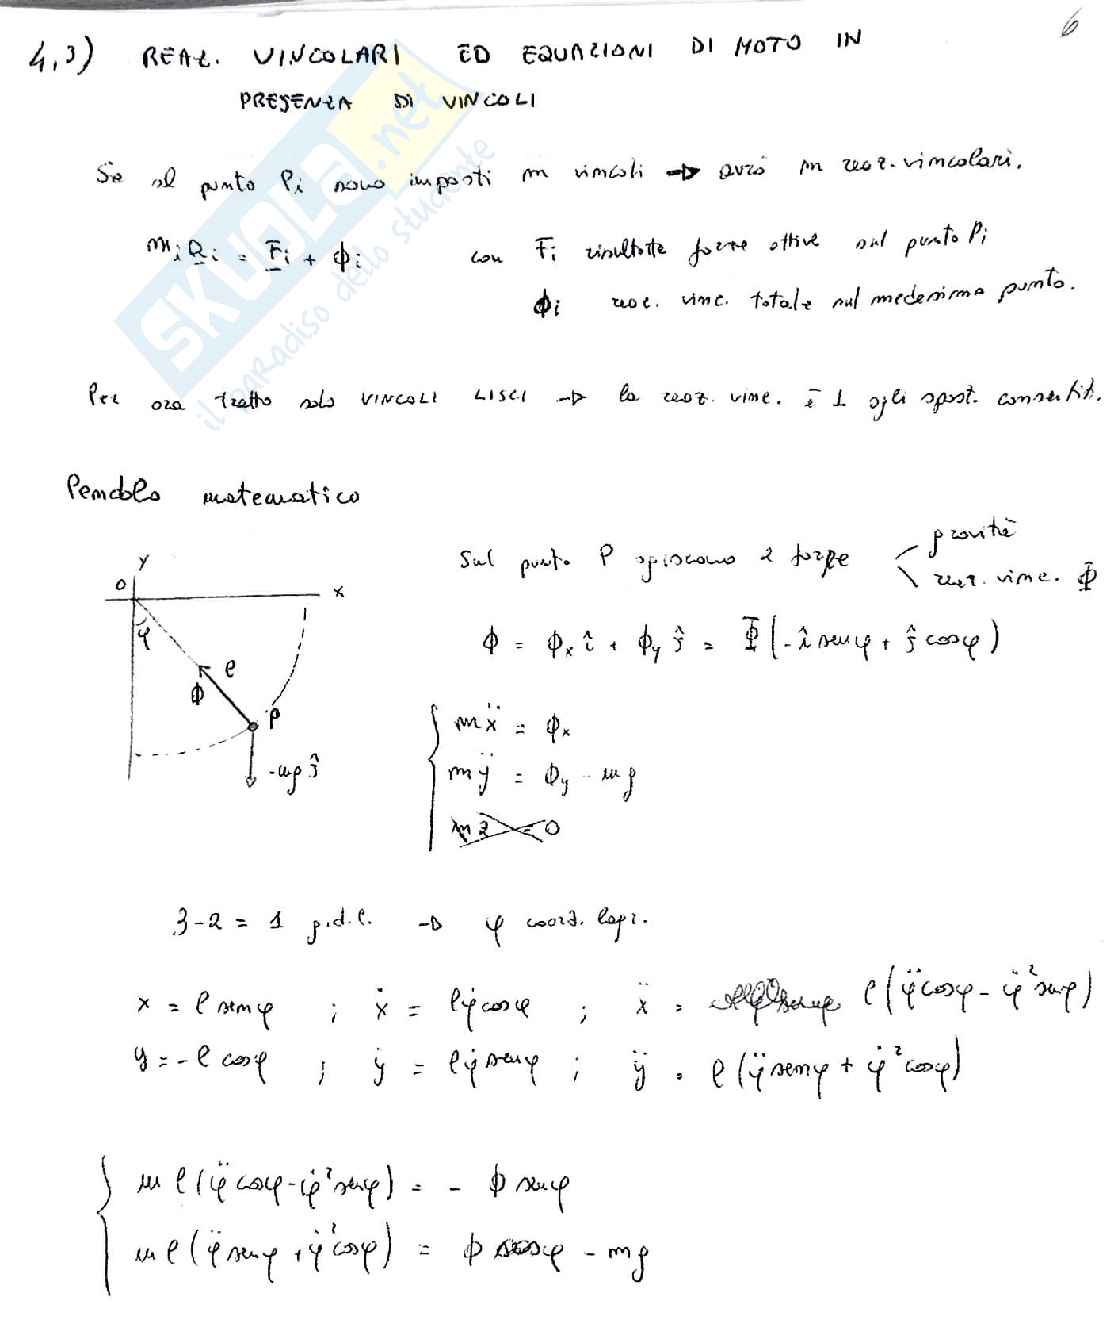 6
4.3) REAZ. VINCOLARI ED EQUAZIONI DI MOTO IN
PRESENZA DI VINCOLI
SKUOLA.net
il paradiso dello studente
Se al punto Pi sono imposti m vincoli → avrò m reaz. vincolari.
mi ai = Fi + ϕi con Fi risultate forze attive sul punto Pi
ϕi reaz. vinc. totale sul medesimo punto.
Per ora tratto solo VINCOLI LISCI → la reaz. vinc. è ⊥ agli spost. consentiti.
Pendolo matematico
Sul punto P agiscono 2 forze
gravità
reaz. vinc. Φ
y
O
x
φ
ℓ
ϕ
P
-mg ĵ
ϕ = ϕx î + ϕy ĵ = Φ(-î senφ + ĵ cosφ)
mẍ = ϕx
mÿ = ϕy - mg
3-2 = 1 g.d.l. → φ coord. lagr.
x = ℓ senφ ; ẋ = ℓφ̇ cosφ ; ẍ = ℓ(φ̈ cosφ - φ̇² senφ)
y = -ℓ cosφ ; ẏ = ℓφ̇ senφ ; ÿ = ℓ(φ̈ senφ + φ̇² cosφ)
mℓ(φ̈ cosφ - φ̇² senφ) = - ϕ senφ
mℓ(φ̈ senφ + φ̇² cosφ) = ϕ cosφ - mg